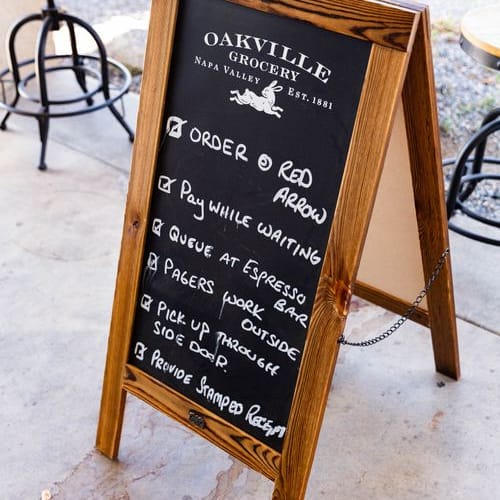 OAKVILLE
GROCERY
NAPA VALLEY EST. 1881
ORDER @ RED
ARROW
PAY WHILE WAITING
QUEUE AT ESPRESSO
BAR
PAGERS WORK
OUTSIDE
PICK UP THROUGH
SIDE DOOR.
PROVIDE STAMPED RECEIPT